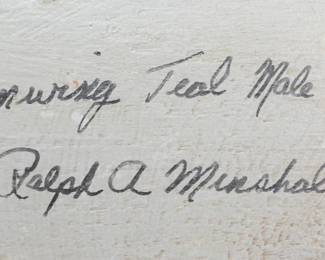 nwing Teal Male
Ralph A Minshal